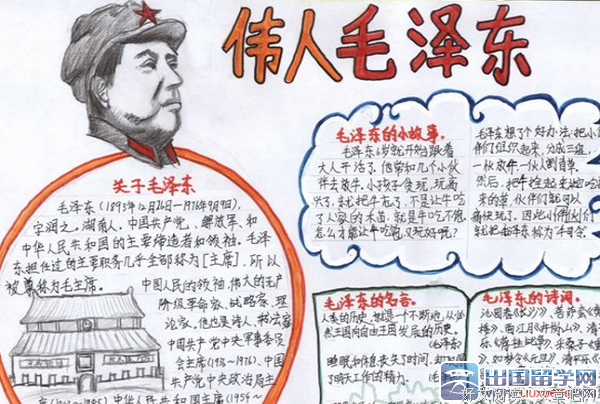 伟人毛泽东
关于毛泽东
毛泽东(1893年12月26日-1976年9月9日),
字润之。湖南人。中国共产党、解放军、和
中华人民共和国的主要缔造者和领袖。毛泽
东担任过的主要职务几乎全部称为[主席],所以
被尊称为毛主席。
中国人民的领袖,伟大的无产
阶级革命家、战略家、理
论家,他也是诗人、书法家
中国共产党中央军事委员
会主席(1936~1976)、中国
共产党中央政治局主
中华人民共和国主席(1954~
毛泽东的小故事。
毛泽东6岁就开始跟着
大人干活了。他常和几个小伙
伴去放牛。小孩子贪玩,玩高
兴了,就把牛忘了,不是让牛吃
了人家的禾苗,就是牛吃不饱,
怎么才能让牛吃饱,又玩好呢?
毛泽东想了个好办法:把小
伴们组织起来,分成三组,
一伙放牛,一伙人割青草,
然后,把牛拴起来
来的草,伙伴们就可以
痛快玩了。因此小伙伴们
就把毛泽东称为"牛司令。
毛泽东的名言。
人类的历史,就是一个不断地,从必
然王国向自由王国发展的历史。
(毛泽东)
睡眠和休息丧失了时间,却
了明天工作的精力。
毛泽东的诗词。
沁园春《长沙》、菩萨蛮
楼》、西江月《井冈山》、清
乐《蒋桂战争》、采桑子
、如梦令《元旦》、
出国留学网